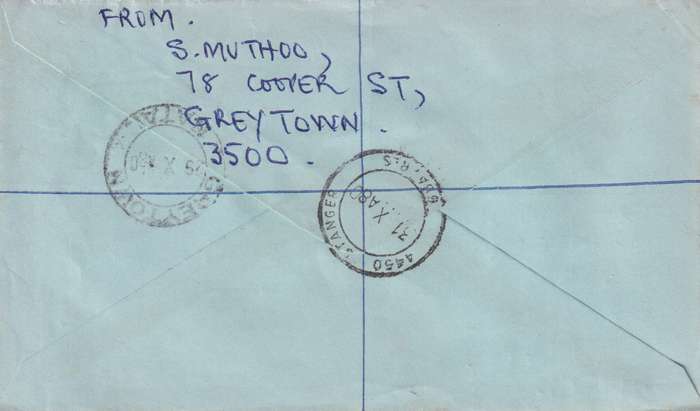 FROM.
S. MUTHOO,
78 COOPER ST,
GREYTOWN.
3500.
NATAL
X
GREYTOWN
STANGER
31 X A80
4450